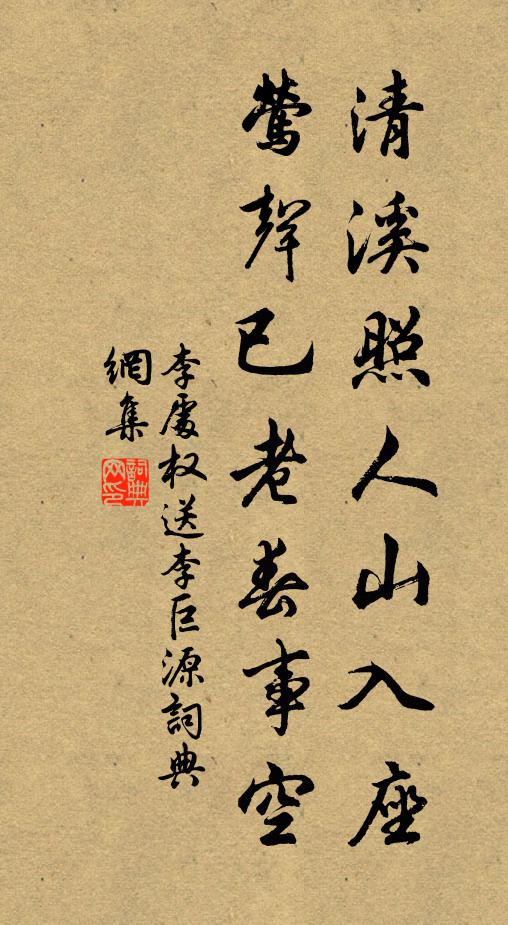 清溪照人山入座
鶯聲已老春事空
李處权送李巨源詞典
網集
詞典
网印